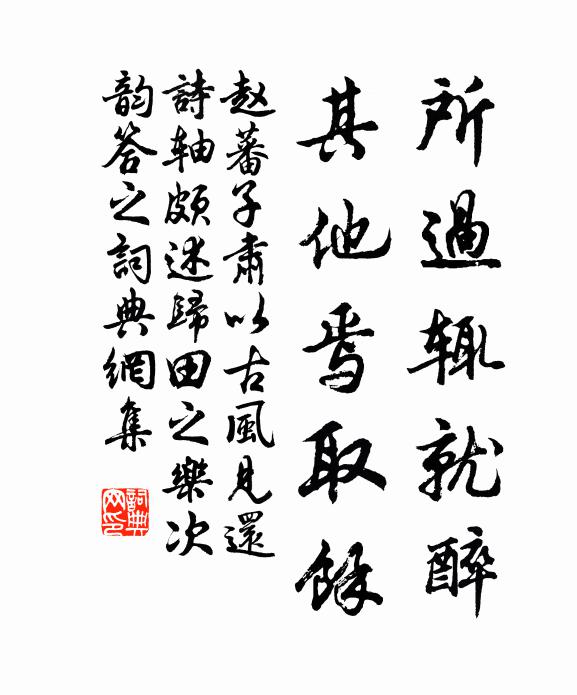 所過辄就醉
其他焉取餘
赵蕃子肅以古風見還
詩轴頗述歸田之樂次
韵答之詞典網集
詞典
网印